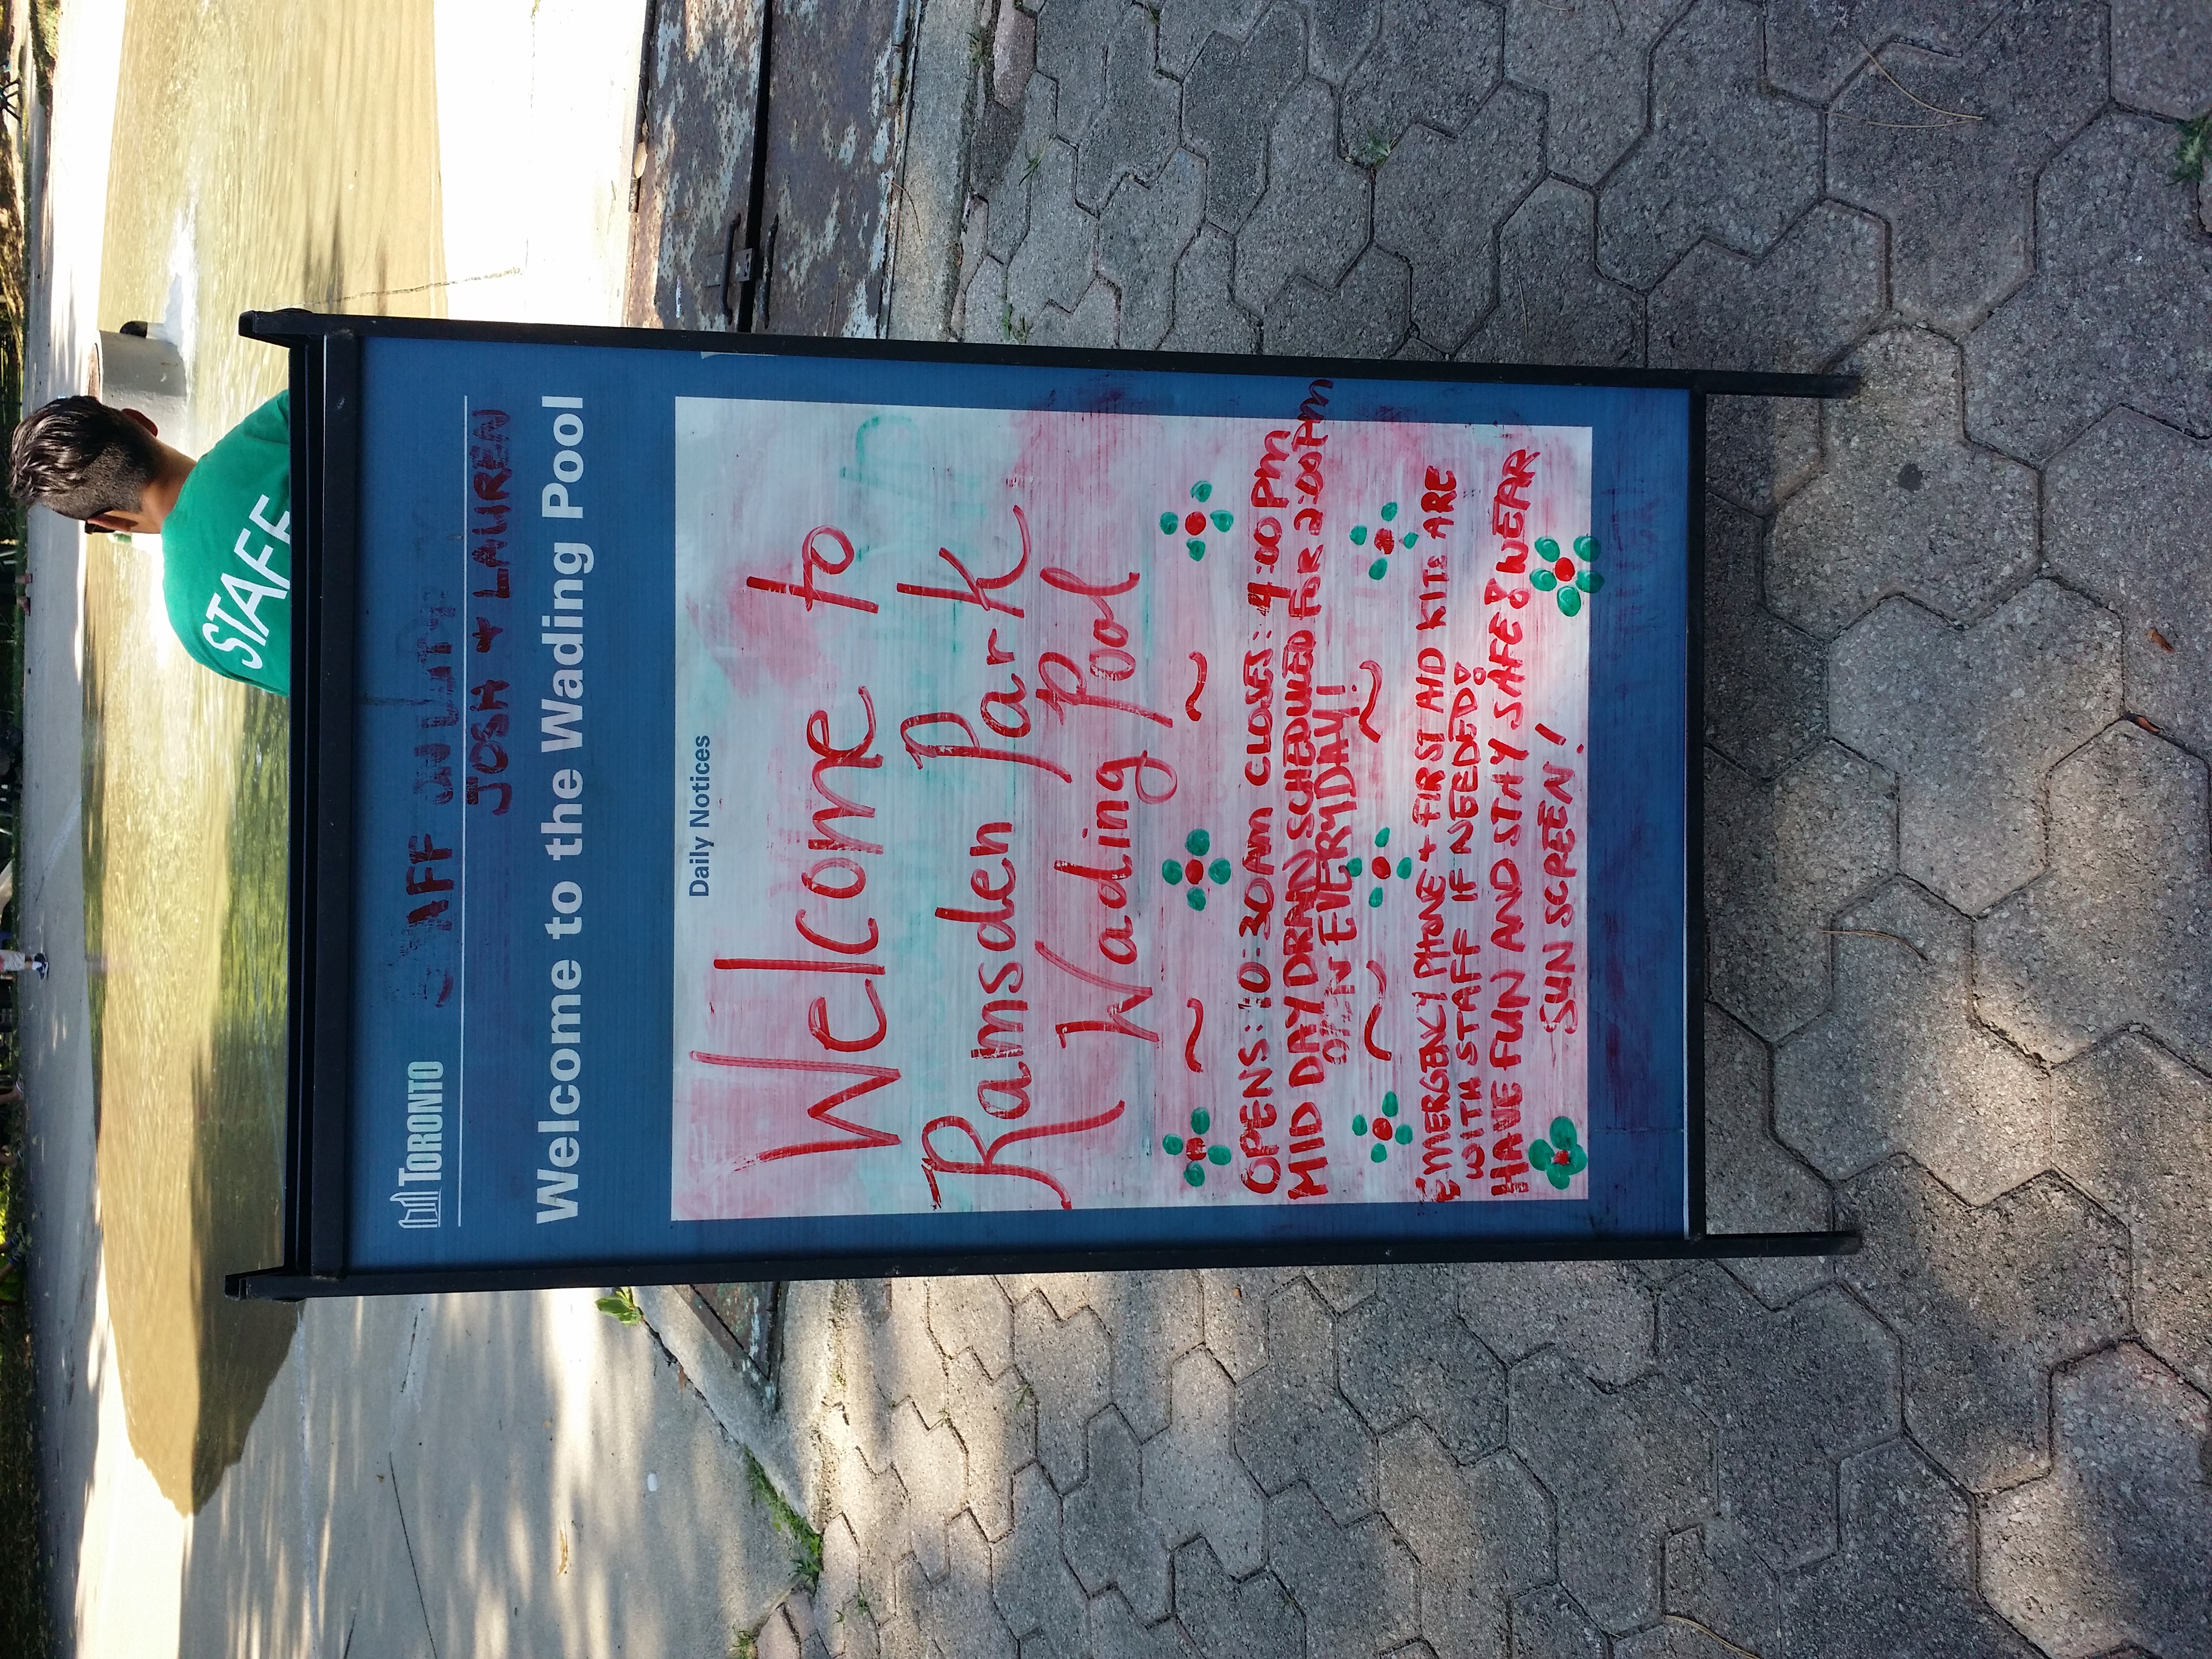 TORONTO
STAFF ON DUTY:
JOSH + LAUREN
Welcome to the Wading Pool
Daily Notices
Welcome to
Ramsden Park
Wading Pool
OPENS: 10:30AM CLOSES: 4:00PM
MID DAY DRAIN SCHEDULED FOR 2:00PM
OPEN EVERYDAY!
EMERGENCY PHONE + FIRST AID KITS ARE
WITH STAFF IF NEEDED!
HAVE FUN AND STAY SAFE & WEAR
SUN SCREEN!
STAFF